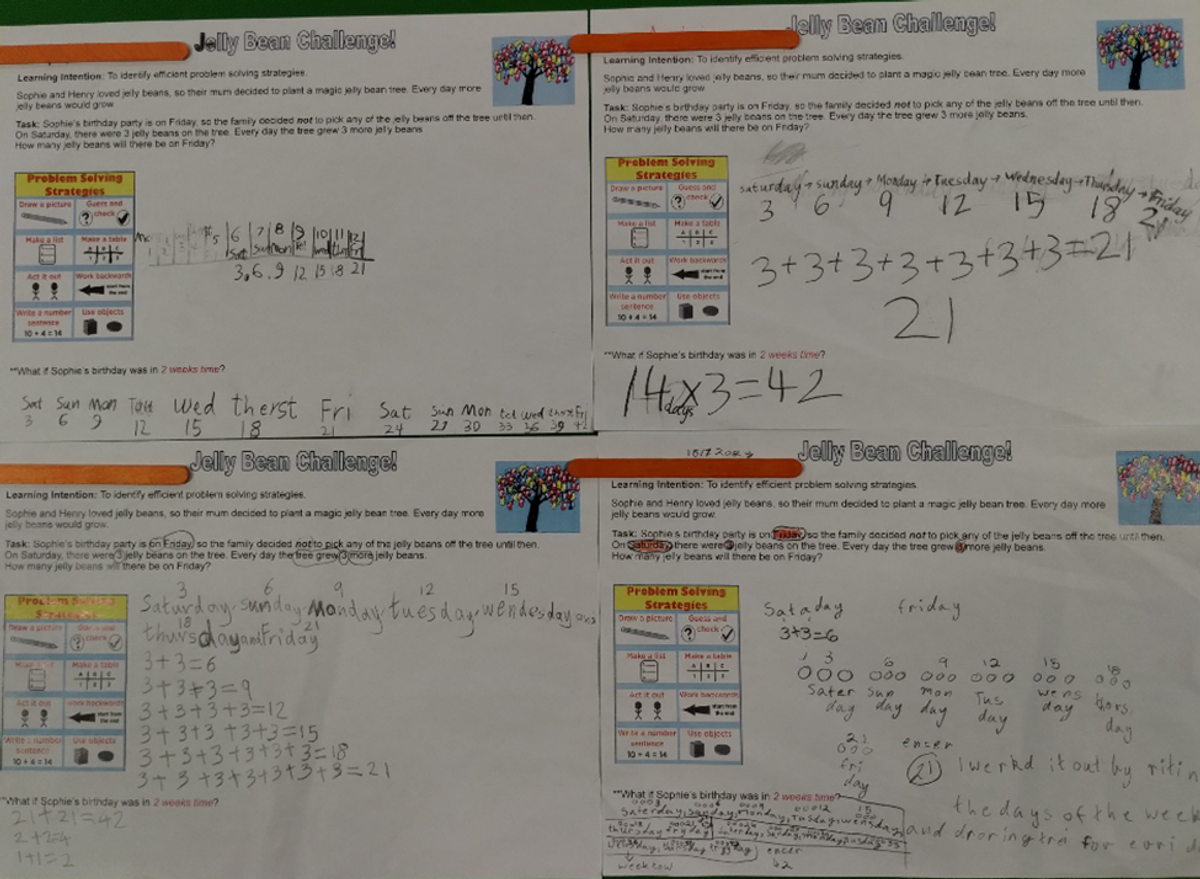 Jelly Bean Challenge!
Learning Intention: To identify efficient problem solving strategies.
Sophie and Henry loved jelly beans, so their mum decided to plant a magic jelly bean tree. Every day more
jelly beans would grow
Task: Sophie's birthday party is on Friday, so the family decided not to pick any of the jelly beans off the tree until then.
On Saturday, there were 3 jelly beans on the tree. Every day the tree grew 3 more jelly beans
How many jelly beans will there be on Friday?
Problem Solving
Strategies
Draw a picture Guess and
check
Make a list Make a table
A B C
1 2 3
Act it out Work backwards
start from
the end
Write a number Use objects
sentence
10 + 4 = 14
5 6 7 8 9 10 11 12
Sat Sun Mon
3, 6, 9 12 15 18 21
**What if Sophie's birthday was in 2 weeks time?
Sat Sun Mon Tau Wed therst Fri Sat Sun Mon tet wed Fri
3 6 9 12 15 18 21 24 27 30 33 36 39 42
Jelly Bean Challenge!
Learning Intention: To identify efficient problem solving strategies.
Sophie and Henry loved jelly beans, so their mum decided to plant a magic jelly bean tree. Every day more
jelly beans would grow
Task: Sophie's birthday party is on Friday, so the family decided not to pick any of the jelly beans off the tree until then.
On Saturday, there were 3 jelly beans on the tree. Every day the tree grew 3 more jelly beans.
How many jelly beans will there be on Friday?
Problem Solving
Strategies
Draw a picture Guess and
check
Make a list Make a table
A B C
1 2 3
Act it out Work backwards
start from
the end
Write a number Use objects
sentence
10 + 4 = 14
saturday → sunday → Monday → Tuesday → Wednesday → Thursday → Friday
3 6 9 12 15 18 21
3+3+3+3+3+3+3=21
21
**What if Sophie's birthday was in 2 weeks time?
14 x 3 = 42
days
Jelly Bean Challenge!
Learning Intention: To identify efficient problem solving strategies.
Sophie and Henry loved jelly beans, so their mum decided to plant a magic jelly bean tree. Every day more
jelly beans would grow.
Task: Sophie's birthday party is on Friday, so the family decided not to pick any of the jelly beans off the tree until then.
On Saturday, there were 3 jelly beans on the tree. Every day the tree grew 3 more jelly beans.
How many jelly beans will there be on Friday?
Problem Solving
Strategies
Draw a picture Guess and
check
Make a list Make a table
A B C
1 2 3
Act it out Work backwards
start from
the end
Write a number Use objects
sentence
10 + 4 = 14
3 6 9 12 15
Saturday, sunday, Monday, tuesday, wendesday and
18 21
thursday and Friday
3+3=6
3+3+3=9
3+3+3+3=12
3+3+3+3+3=15
3+3+3+3+3+3=18
3+3+3+3+3+3+3=21
**What if Sophie's birthday was in 2 weeks time?
21+21=42
2+2=4
1+1=2
Jelly Bean Challenge!
Learning Intention: To identify efficient problem solving strategies.
Sophie and Henry loved jelly beans, so their mum decided to plant a magic jelly bean tree. Every day more
jelly beans would grow.
Task: Sophie's birthday party is on Friday, so the family decided not to pick any of the jelly beans off the tree until then.
On Saturday, there were 3 jelly beans on the tree. Every day the tree grew 3 more jelly beans.
How many jelly beans will there be on Friday?
Problem Solving
Strategies
Draw a picture Guess and
check
Make a list Make a table
A B C
1 2 3
Act it out Work backwards
start from
the end
Write a number Use objects
sentence
10 + 4 = 14
Sataday friday
3+3=6
3 6 9 12 15 18
Sater Sun mon Tus wens thors,
day day day day day day
21
fri encer
day 21 I werkd it out by riting
the days of the week
and droring
**What if Sophie's birthday was in 2 weeks time?
Saterday, sunday, monday, tusday, wensday
thursday fryday saterday, sunday
encer
42
week tow